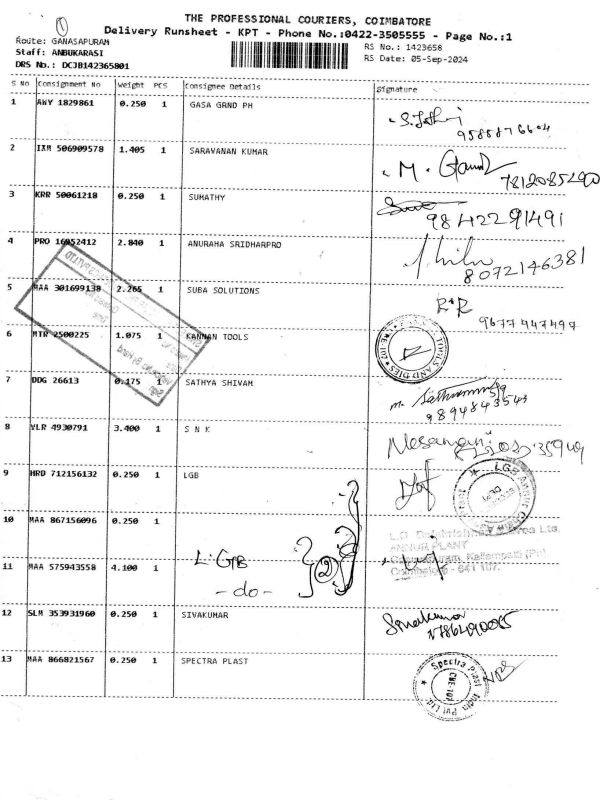 THE PROFESSIONAL COURIERS, COIMBATORE
Delivery Runsheet - KPT - Phone No.:0422-3505555 - Page No.:1
1
Route: GANASAPURAM
RS No.: 1423658
Staff: ANBUKARASI
RS Date: 05-Sep-2024
DRS No.: DCJB142365801
S No Consignment No Weight PCS Consignee Details Signature
1 AWY 1829861 0.250 1 GASA GRND PH
2 IXM 506909578 1.405 1 SARAVANAN KUMAR
M.
7812085290
3 KRR 50061218 0.250 1 SUMATHY
9842291491
4 PRO 16952412 2.840 1 ANURAHA SRIDHARPRO
8072146381
5 MAA 301699138 2.265 1 SUBA SOLUTIONS
9677447497
6 MTR 2500225 1.075 1 KANNAN TOOLS
TOOLS AND DIES
7 DDG 26613 0.175 1 SATHYA SHIVAM
9894843543
8 VLR 4930791 3.400 1 S N K
9 HRD 712156132 0.250 1 LGB
10 MAA 867156096 0.250 1
ANNUR PLANT
Coimbatore - 641 107.
11 MAA 575943558 4.100 1 L.GB
-do-
2
12 SLM 353931960 0.250 1 SIVAKUMAR
13 MAA 866821567 0.250 1 SPECTRA PLAST
Spectra Plast India Pvt Ltd.
CBE-107